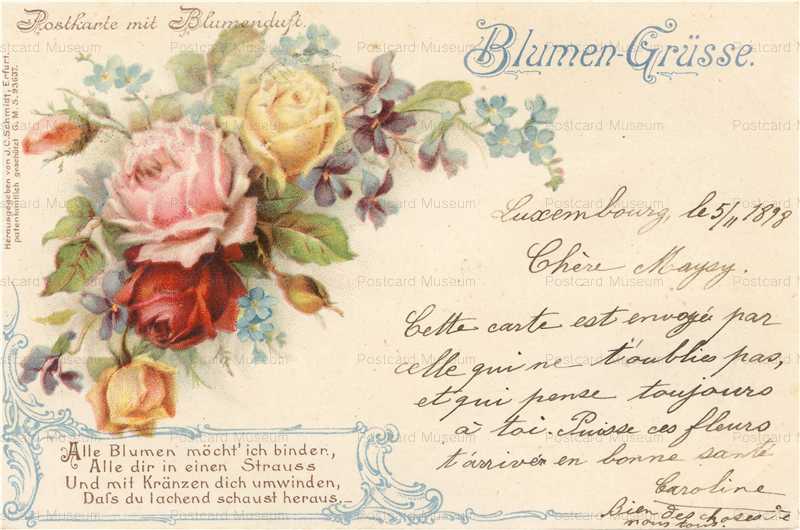 Postkarte mit Blumenduft.
Blumen-Grüsse.
Herausgegeben von J.C. Schmidt, Erfurt.
patentamtlich geschützt G. M. S. 93637.
Luxembourg, le 5/11 1898
Chère Maysy.
Cette carte est envoyée par
celle qui ne t'oublies pas,
et qui pense toujours
à toi. Puisse ces fleurs
t'arriver en bonne santé
Caroline
Bien des choses de
nous tous
Alle Blumen möcht' ich binden,
Alle dir in einen Strauss
Und mit Kränzen dich umwinden,
Daſs du lachend schaust heraus.
Postcard Museum